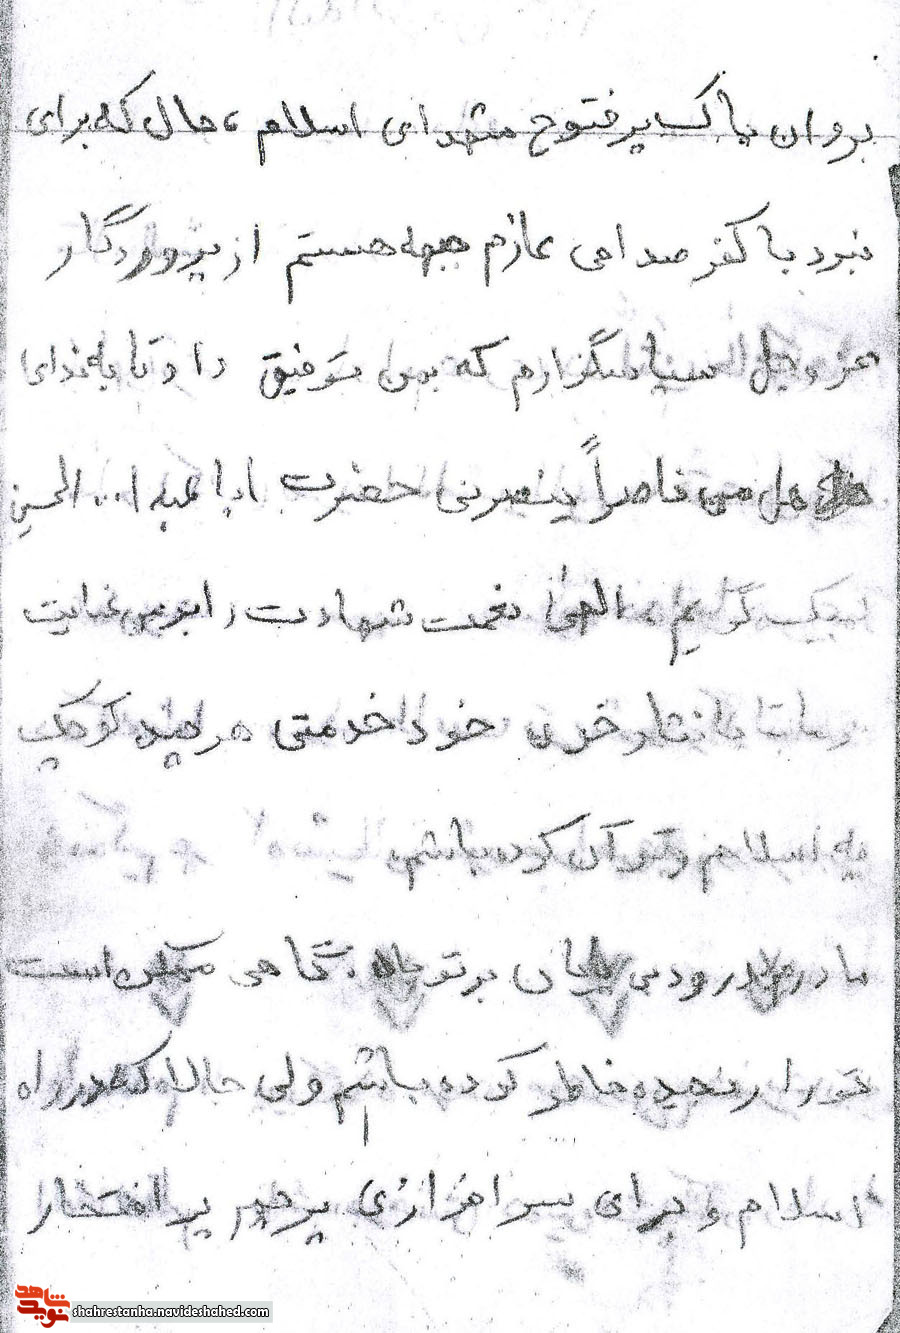 بروان پاک پر فتوح شهدای اسلام، حال که برای
نبرد با کفر صدامی عازم جبهه هستم از پروردگار
عز و جل سپاسگزارم که بمن توفیق داد تا به ندای
هل من ناصراً ینصرنی حضرت ابا عبدا... الحسین
لبیک گویم، الهیٰ نعمت شهادت را بمن عنایت
بنثار خون خود خدمتی هر چند کوچک
به اسلام و قرآن کرده باشم
مادرم درود بی پایان بر تو باد. گاهی ممکن است
تو را رنجیده خاطر کرده باشم ولی حالا که در راه
اسلام و برای سرافرازی پرچم پر افتخار
شاهد
نوید
shahrestanha.navideshahed.com